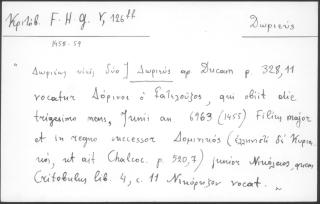 Κριτόβ. F. H. G. V, 126ff
Δωριεύς
1458-59
" Δωριέως υἱεῖς δύο] Δωριεὺς ap Ducam p. 328,11
vocatur Δόρινος ὁ Γατελοῦζος, qui obiit die
trigesimo mens, Junii an 6963 (1455) Filius major
et in regno successor Δομινικός (ἑλληνιστὶ δὲ Κυρια-
κός, ut ait Chalcoc. p. 520,7) junior Νικόλαος, quem
Critobulus lib. 4, c. 11 Νικόροζον vocat. "